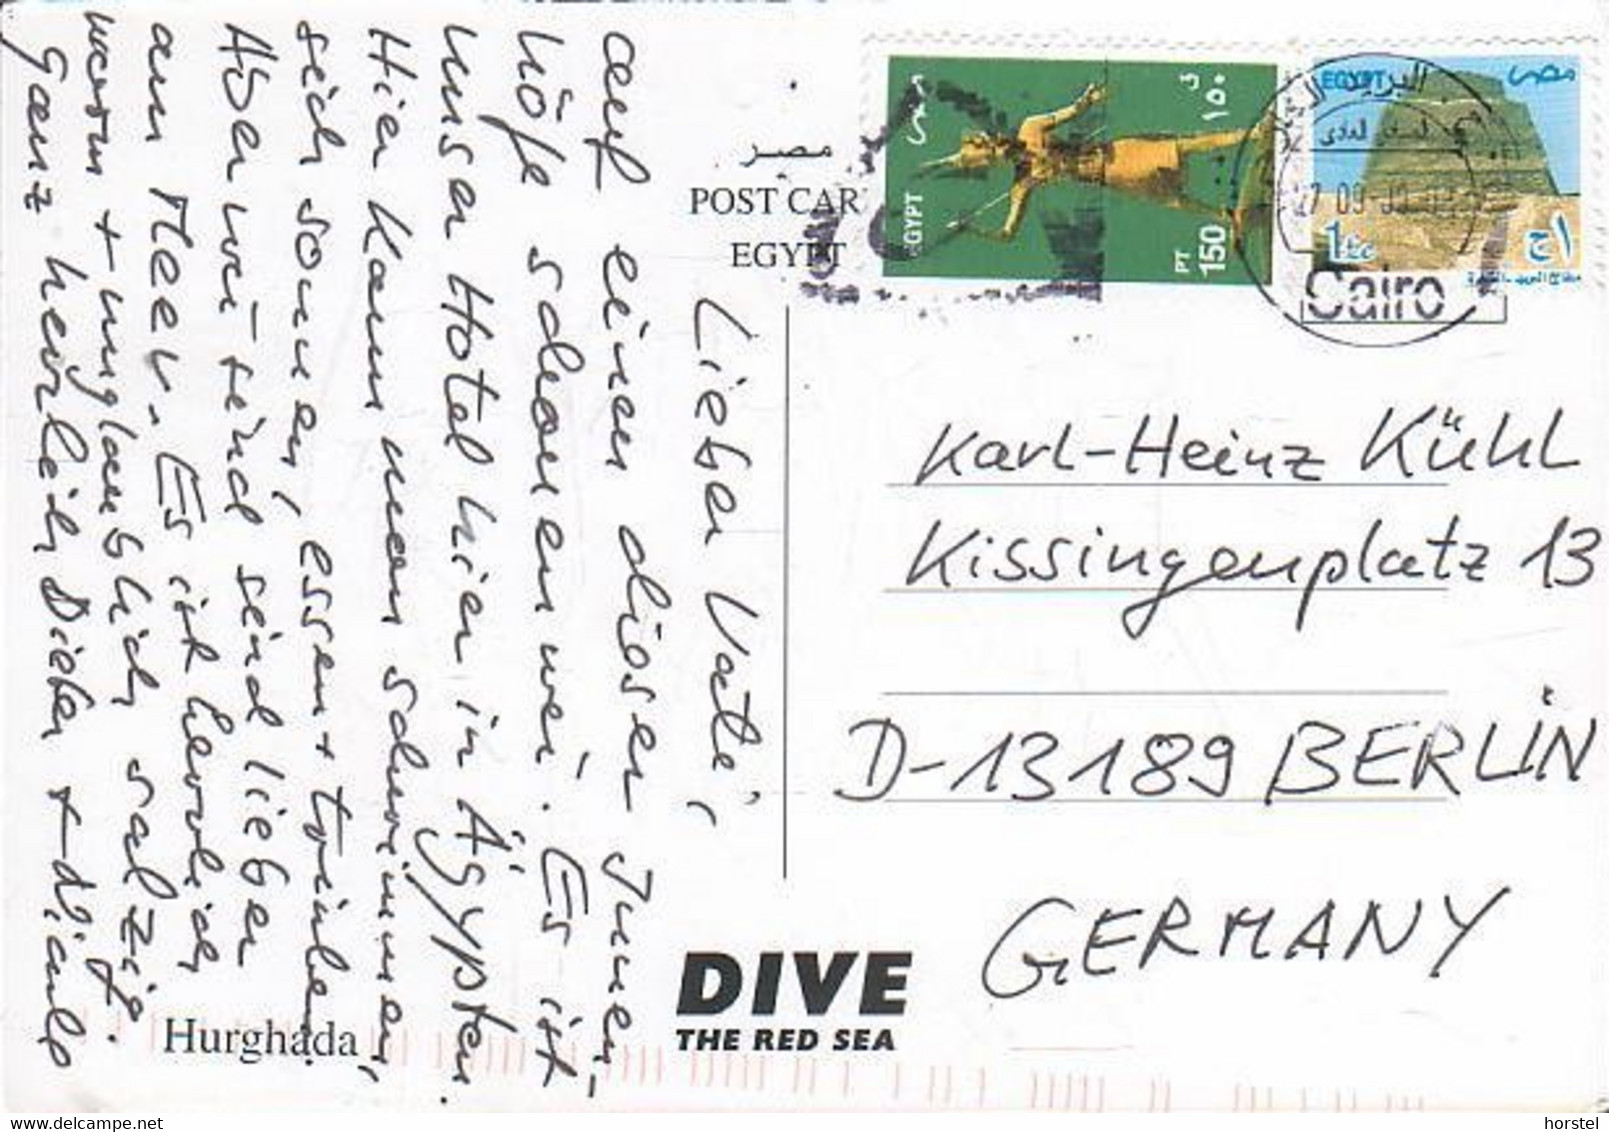 Lieber Vati,
auf einen dieser Innen-
höfe schauen wir. Es ist
unser Hotel hier in Ägypten.
Hier kann man schwimmen,
sich sonnen, essen + trinken.
Aber wir sind sind lieber
am Meer. Es ist herrlich
warm + unglaublich salzig.
Ganz herzlich Dieter +
Hurghada
مصر
POST CAR
EGYPT
EGYPT
مصر
PT 150
١٥٠
EGYPT
مصر
1
Cairo
Karl-Heinz Kühl
Kissingenplatz 13
D-13189 BERLIN
GERMANY
DIVE
THE RED SEA
horstel